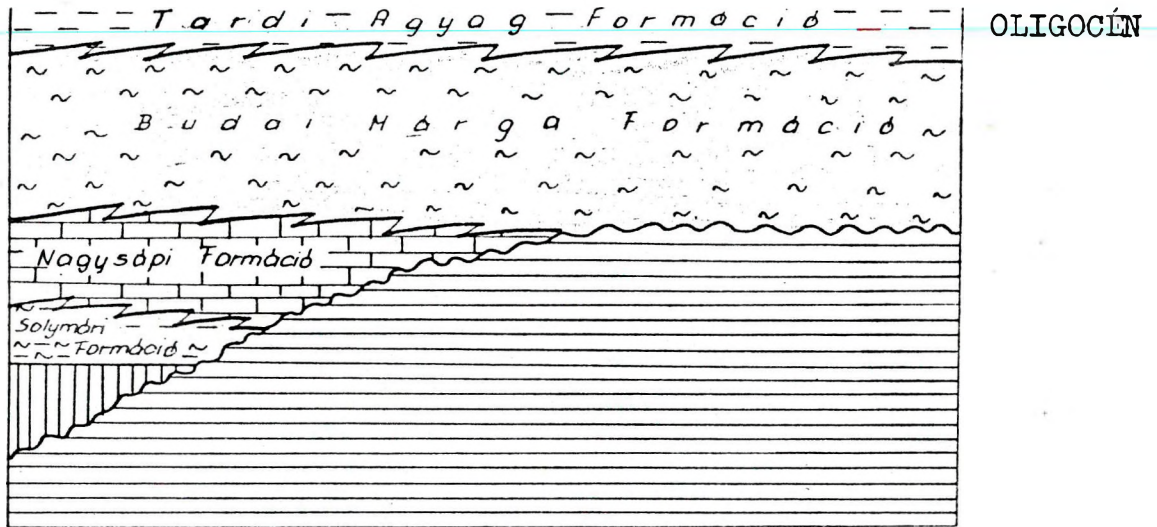 Tardi Agyag Formáció
OLIGOCÉN
Budai Márga Formáció
Nagysápi Formáció
Solymári
Formáció